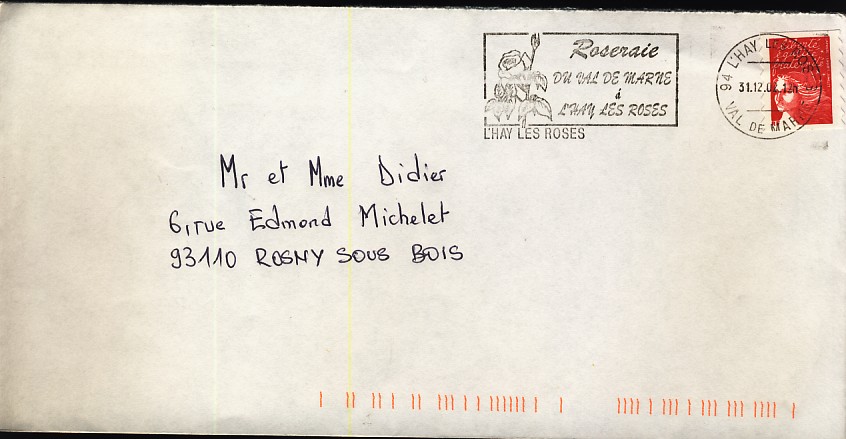 Roseraie
DU VAL DE MARNE
à
L'HAY LES ROSES
L'HAY LES ROSES
94 L'HAY LES
31.12.02
VAL DE MARNE
Mr et Mme Didier
6, rue Edmond Michelet
93110 ROSNY SOUS BOIS